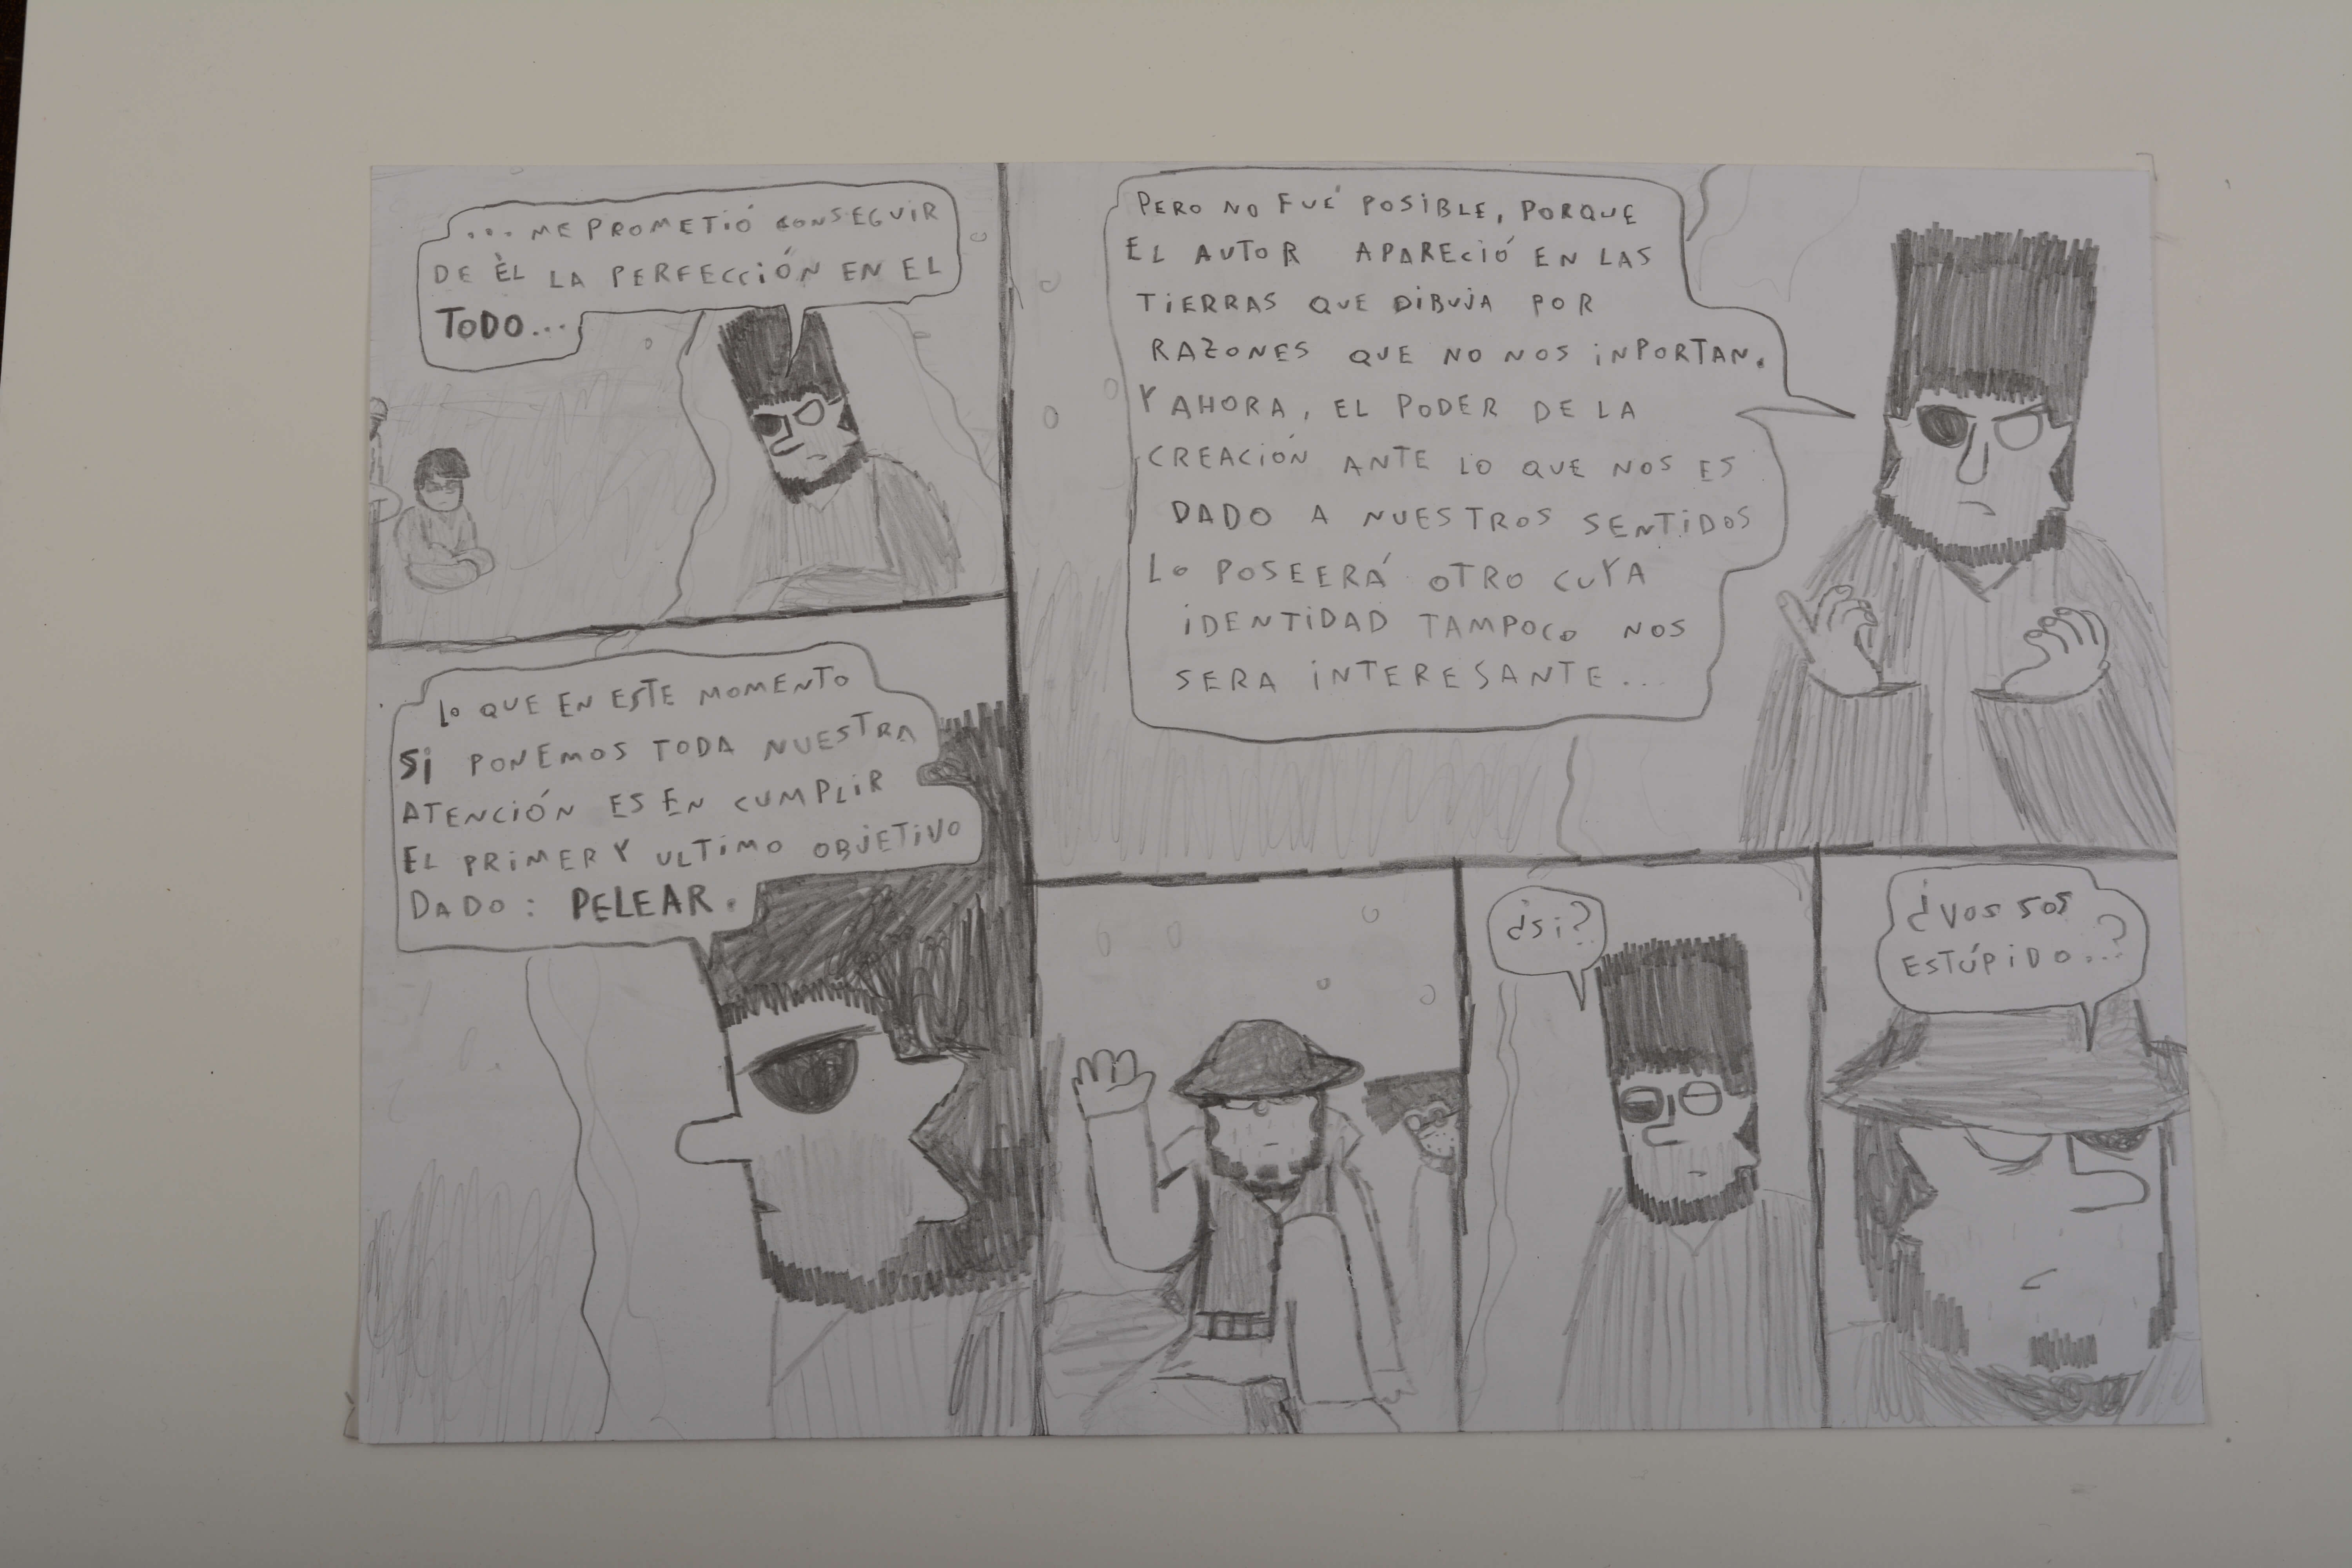 ... ME PROMETIÓ CONSEGUIR
DE ÈL LA PERFECCIÓN EN EL
TODO...
PERO NO FUÉ POSIBLE, PORQUE
EL AUTOR APARECIÓ EN LAS
TIERRAS QUE DIBUJA POR
RAZONES QUE NO NOS INPORTAN.
Y AHORA, EL PODER DE LA
CREACIÓN ANTE LO QUE NOS ES
DADO A NUESTROS SENTIDOS
LO POSEERÁ OTRO CUYA
IDENTIDAD TAMPOCO NOS
SERA INTERESANTE...
LO QUE EN ESTE MOMENTO
SI PONEMOS TODA NUESTRA
ATENCIÓN ES EN CUMPLIR
EL PRIMER Y ULTIMO OBJETIVO
DADO: PELEAR.
¿SI?
¿VOS SOS
ESTÚPIDO...?